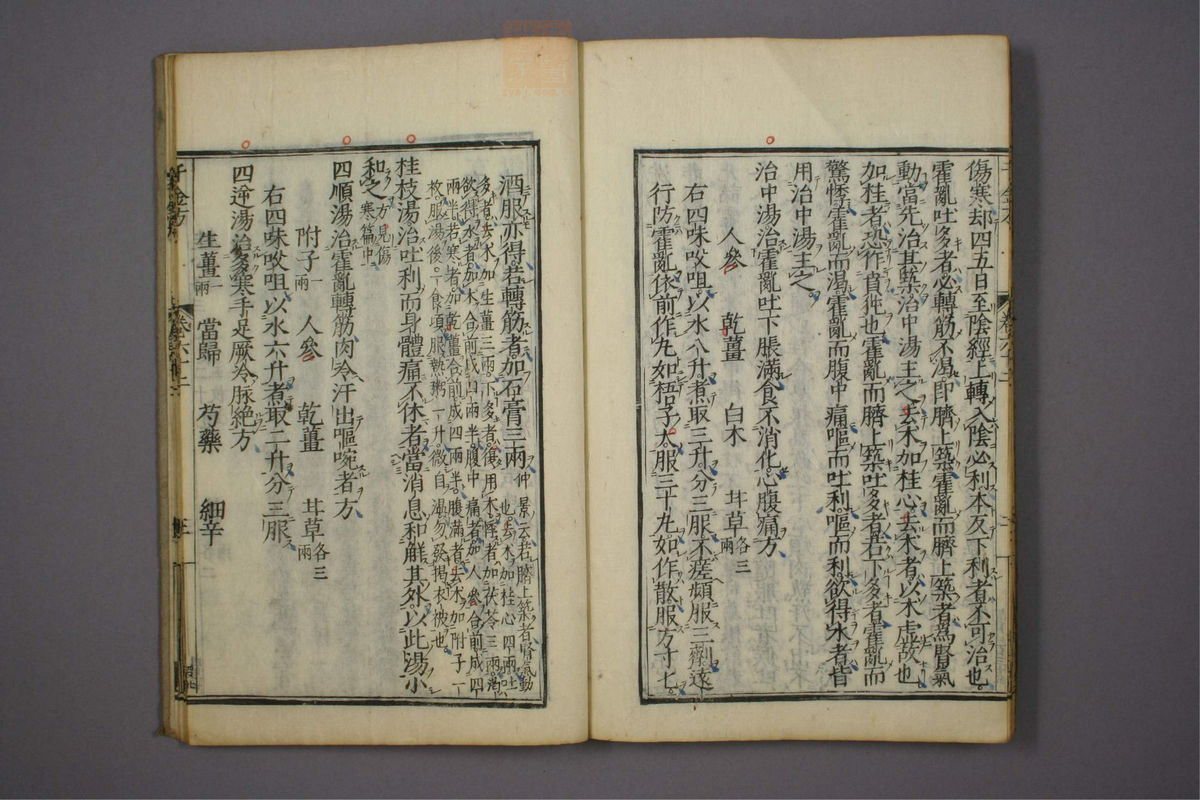 傷寒却四五日至陰經上轉入陰必利本反下利者不可治也
霍亂吐多者必轉筋不渴即臍上築霍亂而臍上築者為腎氣
動當先治其築治中湯主之去朮加桂心去朮者以朮虛故也
加桂者恐作賁㹠也霍亂而臍上築吐多者若下多者霍亂而
驚悸霍亂而渴霍亂而腹中痛嘔而吐利嘔而利欲得水者皆
用治中湯主之
治中湯治霍亂吐下脹滿食不消化心腹痛方
人參 乾薑 白朮 甘草各三兩
右四味㕮咀以水八升煮取三升分三服不瘥頻服三劑遠
行防霍亂依前作丸如梧子大服三十丸如作散服方寸匕
酒服亦得若轉筋者加石膏三兩
仲景云若臍上築者腎氣動也去朮加桂心四兩吐
多者去朮加生薑三兩下多者復用朮悸者加茯苓二兩渴
欲得水者加朮合前成四兩半腹中痛者加人參合前成四
兩半若寒者加乾薑合前成四兩半腹滿者去朮加附子一
枚服湯後一食頃服熱粥一升微自溫勿發揭衣被也
桂枝湯治吐利而身體痛不休者當消息和解其外以此湯小
和之方見傷寒篇中
四順湯治霍亂轉筋肉冷汗出嘔啘者方
附子一兩 人參 乾薑 甘草各三兩
右四味㕮咀以水六升煮取二升分三服
四逆湯治多寒手足厥冷脉絕方
生薑 當歸 芍藥 細辛
千金方